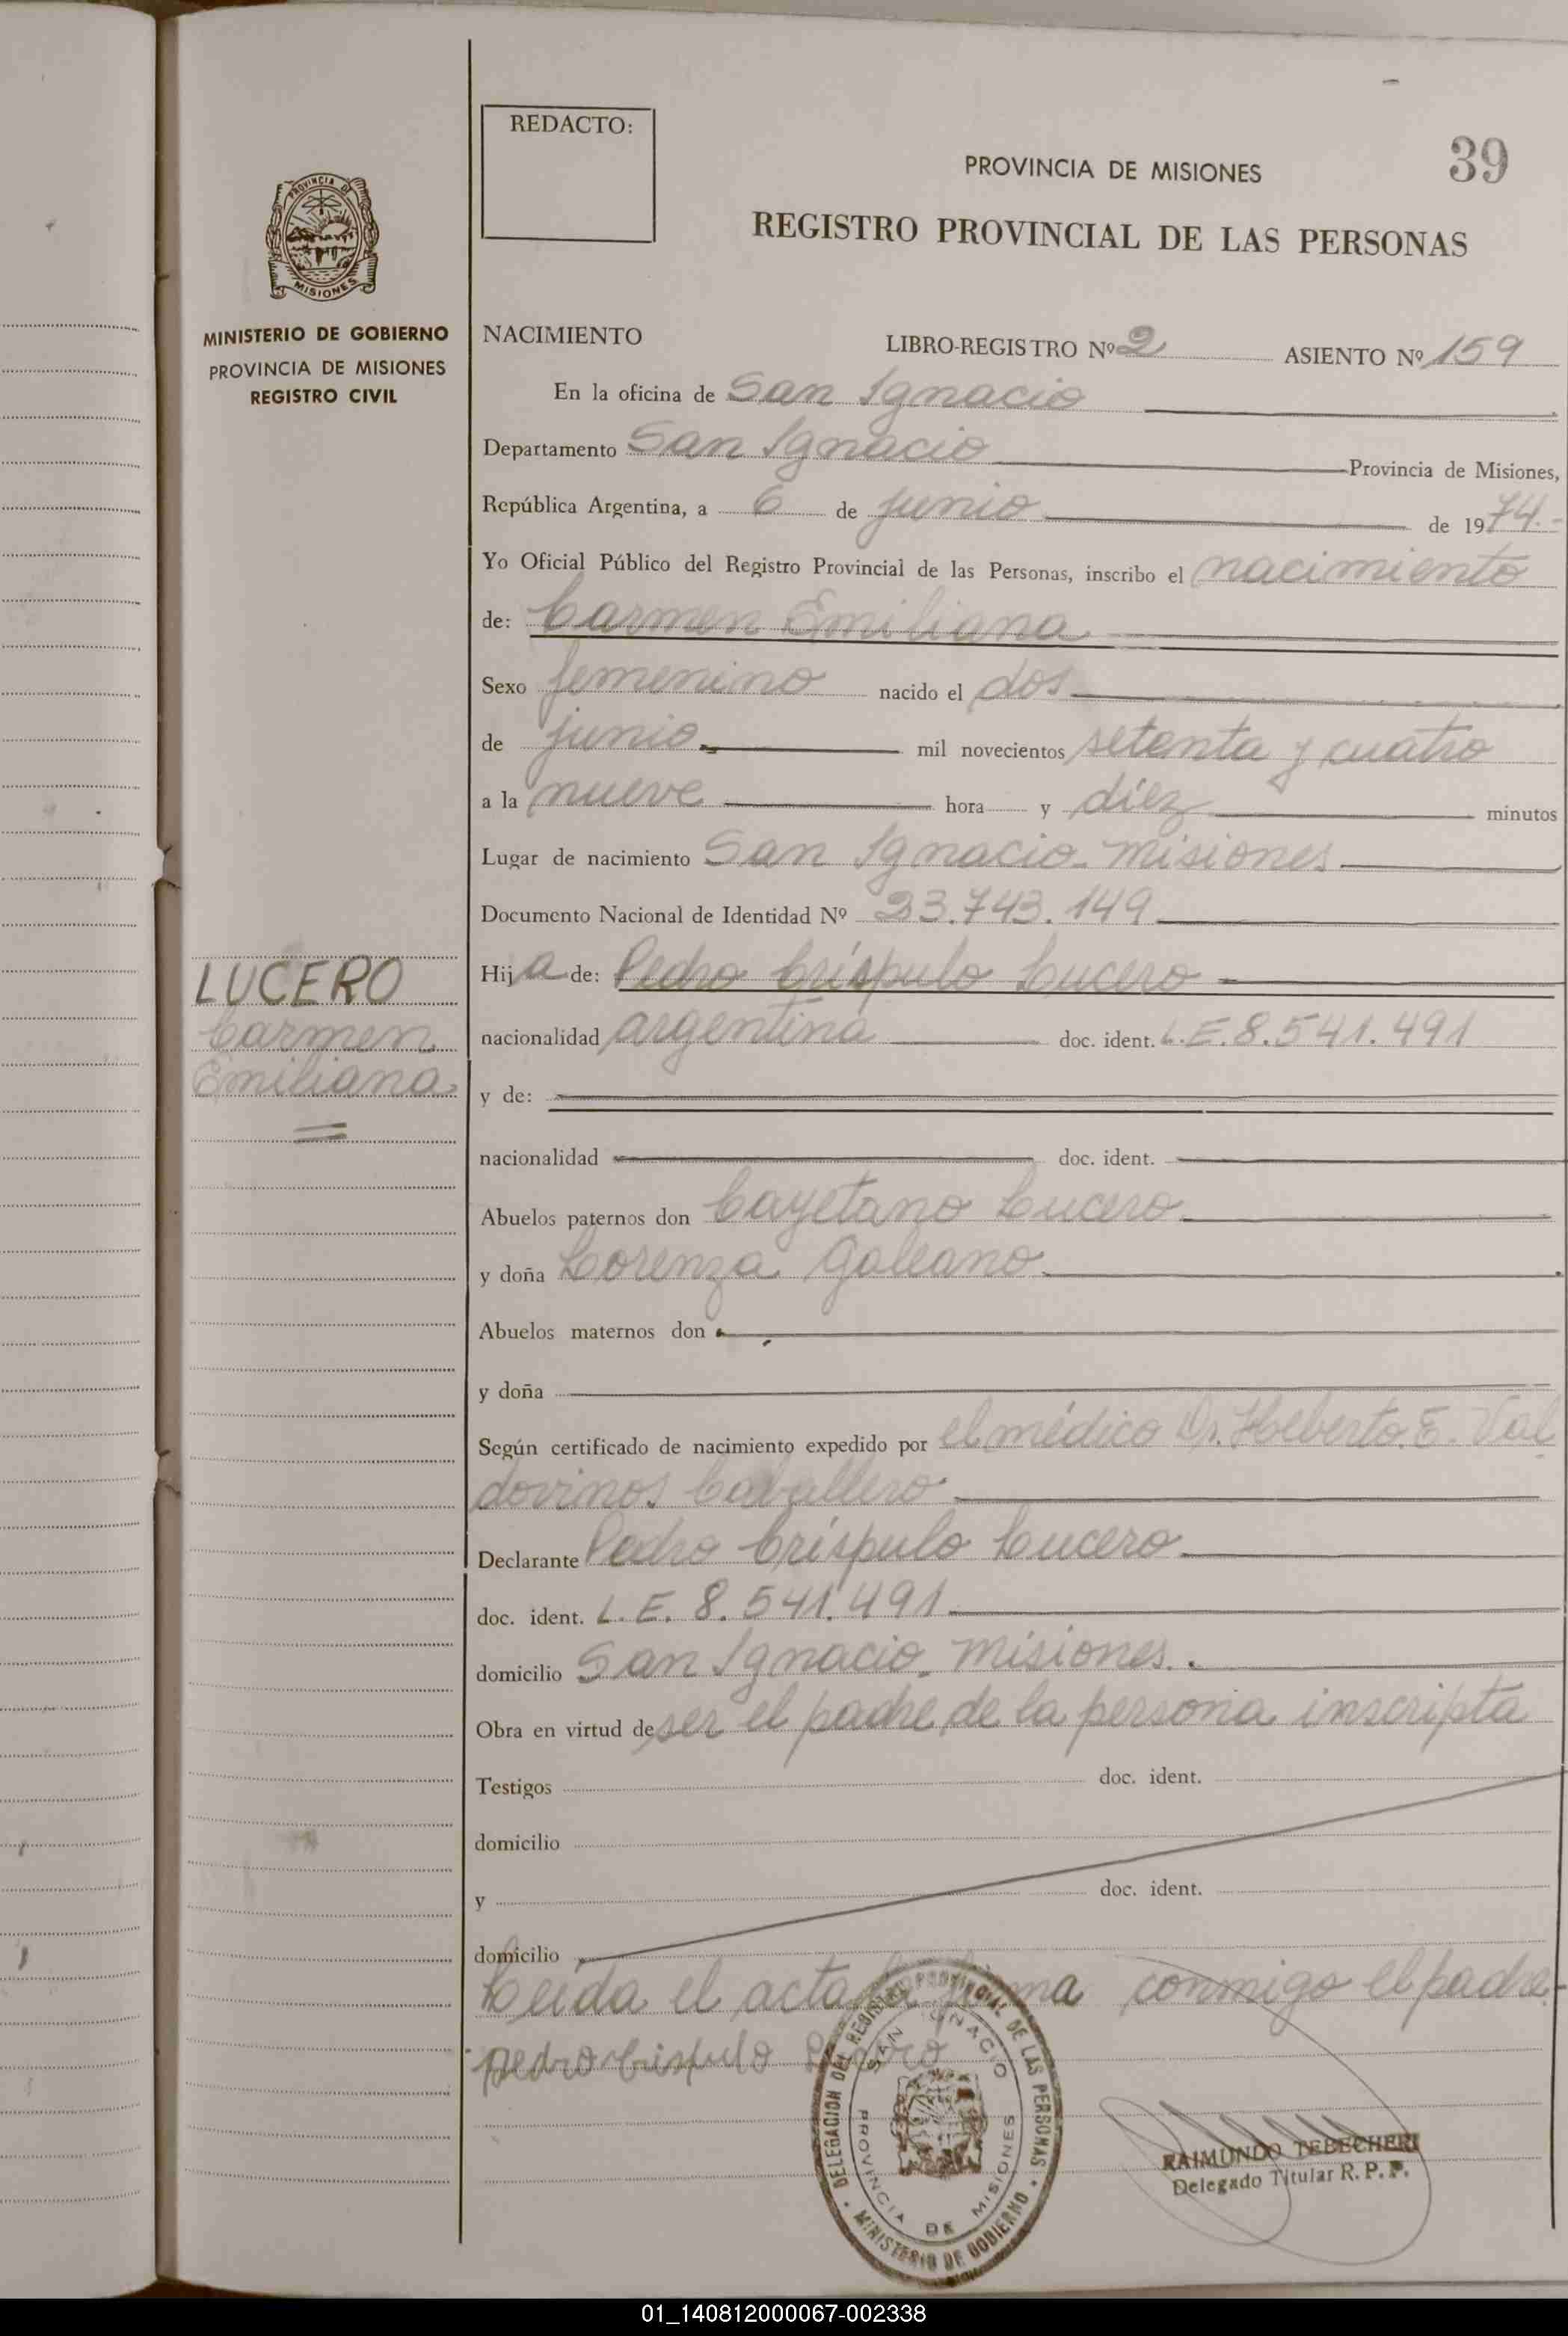 REDACTO:
39
PROVINCIA DE MISIONES
REGISTRO PROVINCIAL DE LAS PERSONAS
PROVINCIA DE
MISIONES
MINISTERIO DE GOBIERNO
PROVINCIA DE MISIONES
REGISTRO CIVIL
NACIMIENTO LIBRO-REGISTRO Nº 2 ASIENTO Nº 159
En la oficina de San Ignacio
Departamento San Ignacio Provincia de Misiones,
República Argentina, a 6 de junio de 1974.-
Yo Oficial Público del Registro Provincial de las Personas, inscribo el nacimiento
de: Carmen Emiliana
Sexo femenino nacido el dos
de junio mil novecientos setenta y cuatro
a la nueve hora y diez minutos
Lugar de nacimiento San Ignacio - Misiones
Documento Nacional de Identidad Nº 23.743.149
LUCERO
Carmen
Emiliana
Hija de: Pedro Críspulo Lucero
nacionalidad argentina doc. ident. L.E. 8.541.491
y de:
nacionalidad doc. ident.
Abuelos paternos don Cayetano Lucero
y doña Lorenza Galeano
Abuelos maternos don
y doña
Según certificado de nacimiento expedido por el médico Dr. Heberto E. Val
dovinos Caballero
Declarante Pedro Críspulo Lucero
doc. ident. L.E. 8.541.491
domicilio San Ignacio - Misiones.
Obra en virtud de ser el padre de la persona inscripta
Testigos doc. ident.
domicilio
y doc. ident.
domicilio
Leída el acta la firma conmigo el padre.-
Pedro Crispulo Lucero
DELEGACION DEL REGISTRO PROVINCIAL DE LAS PERSONAS
SAN IGNACIO
PROVINCIA DE MISIONES
MINISTERIO DE GOBIERNO
RAIMUNDO TEBECHERI
Delegado Titular R. P. P.
01_140812000067-002338